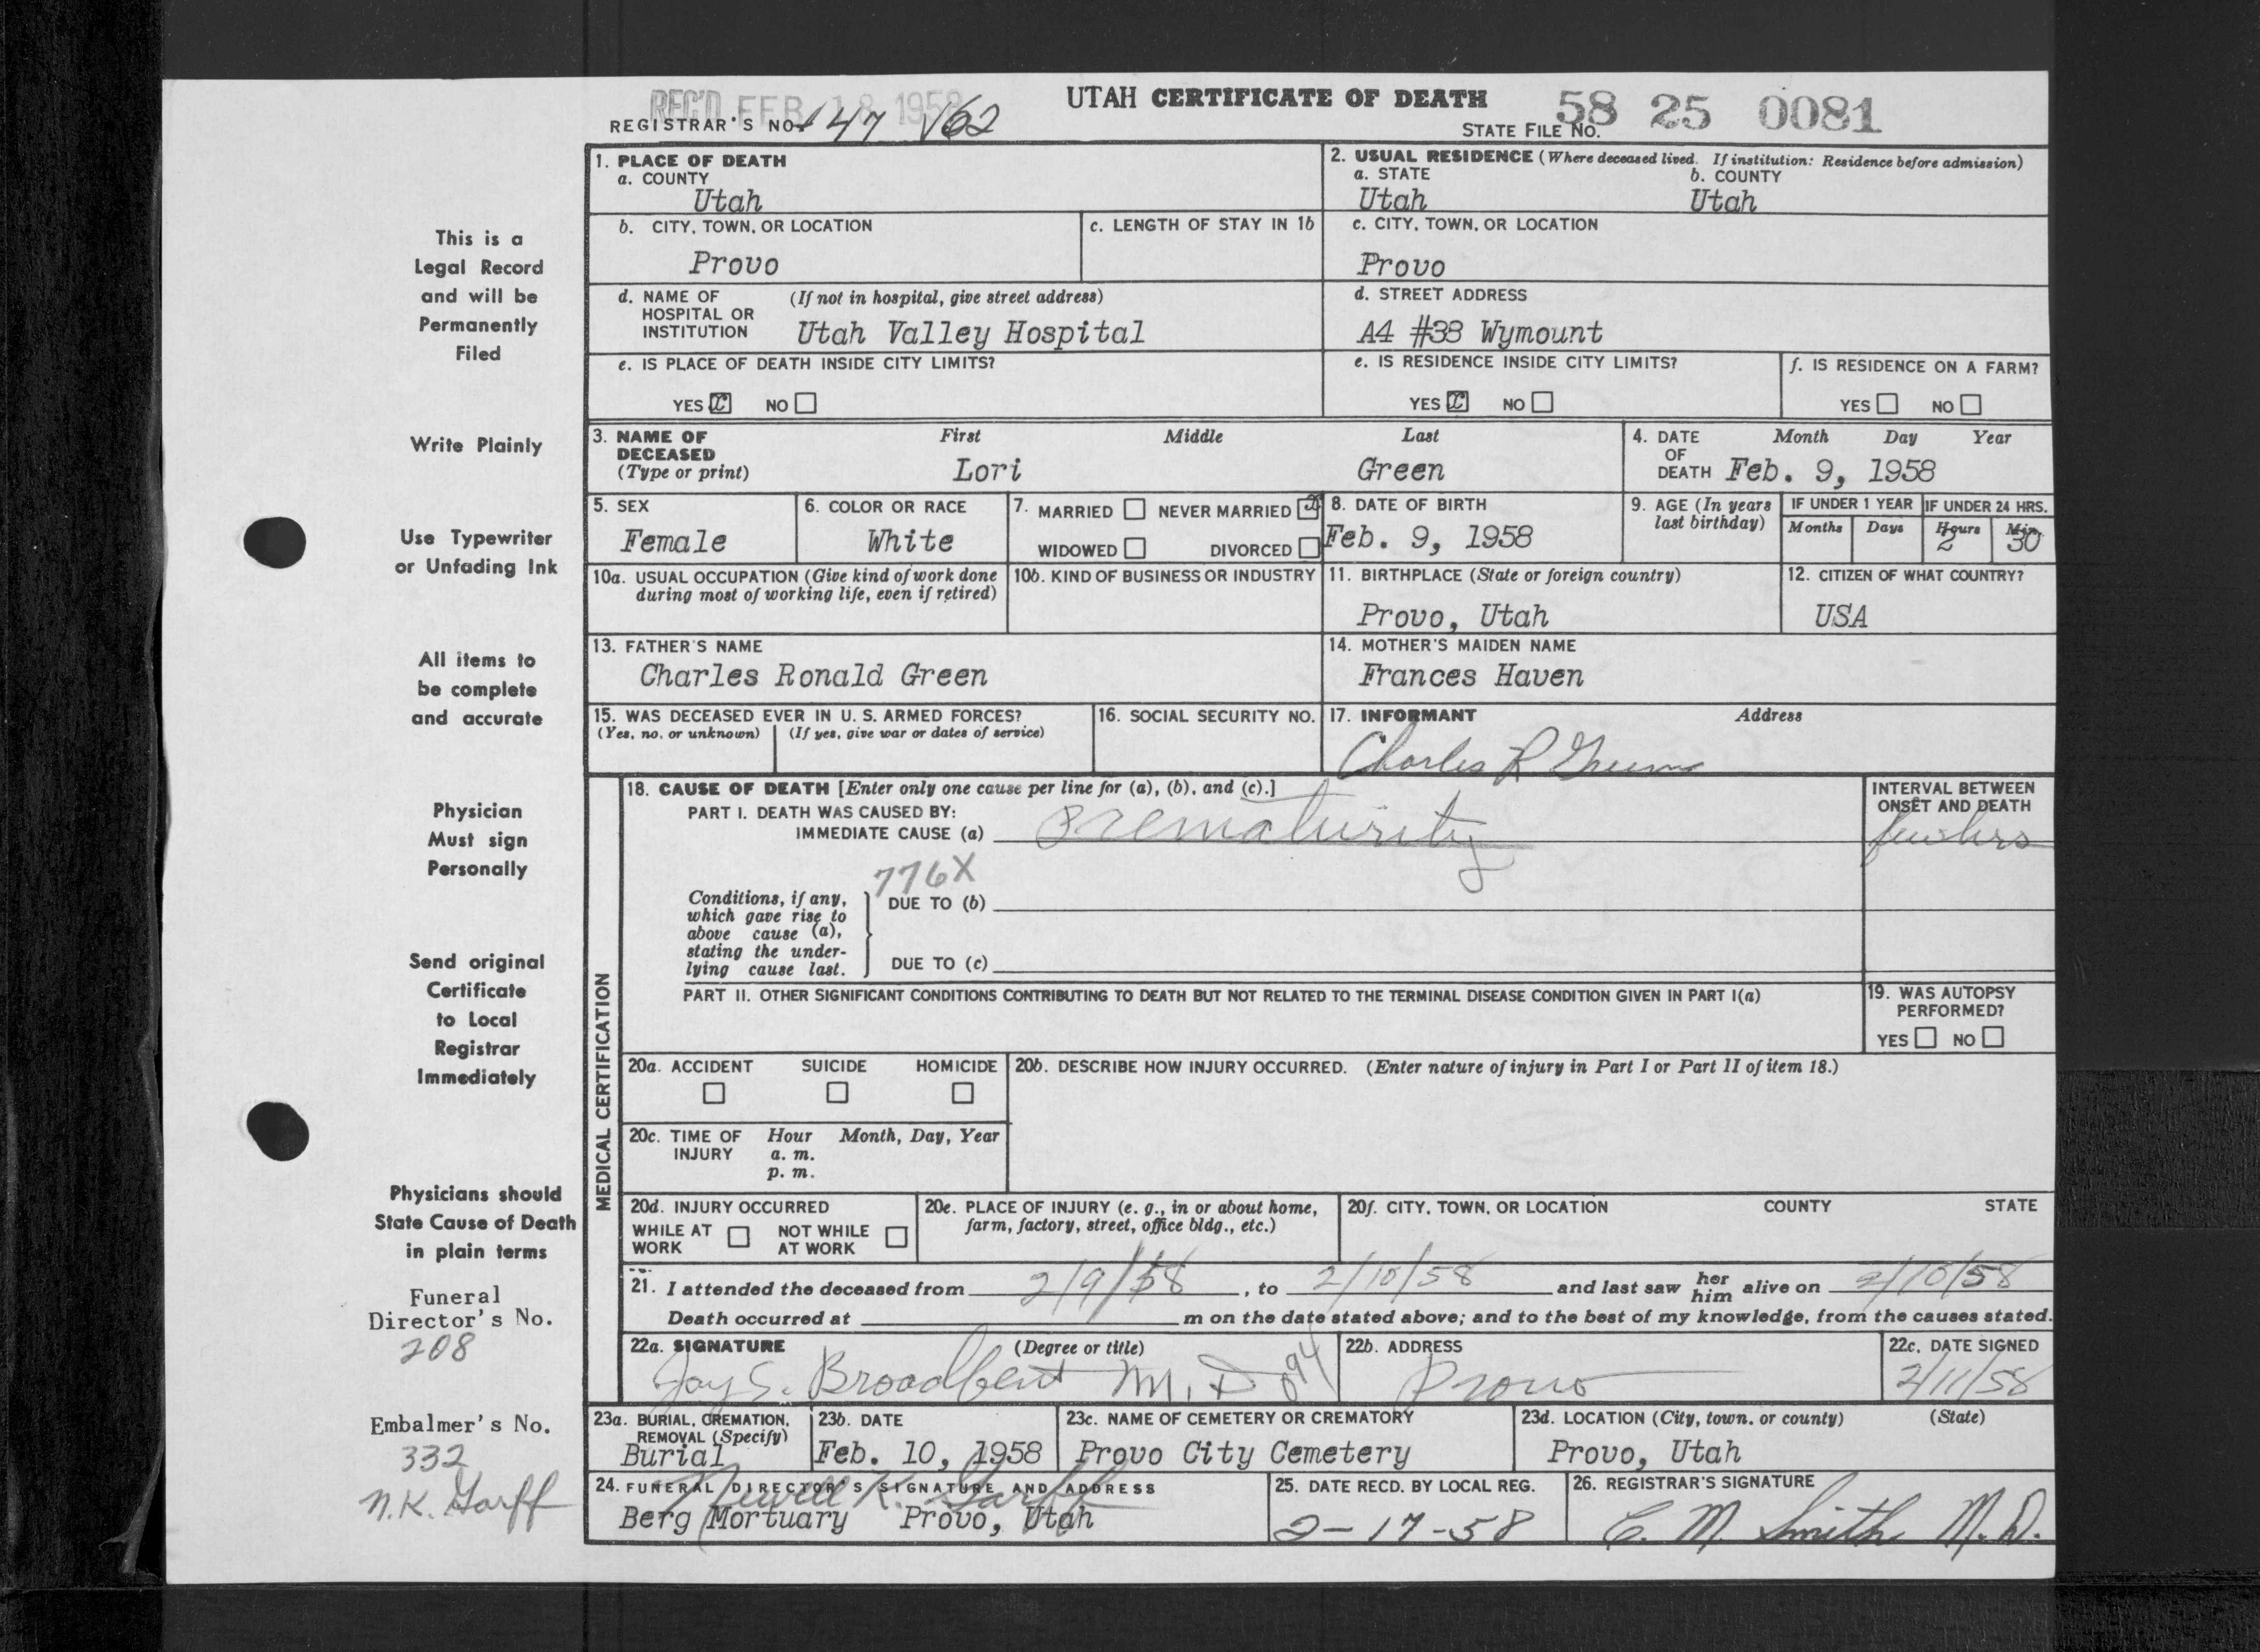 REC'D FEB 18 1958
UTAH CERTIFICATE OF DEATH
REGISTRAR'S NO. 147 V62
STATE FILE NO. 58 25 0081
This is a
Legal Record
and will be
Permanently
Filed
Write Plainly
Use Typewriter
or Unfading Ink
All items to
be complete
and accurate
Physician
Must sign
Personally
Send original
Certificate
to Local
Registrar
Immediately
Physicians should
State Cause of Death
in plain terms
Funeral
Director's No.
208
Embalmer's No.
332
N.K. Garff
1. PLACE OF DEATH
a. COUNTY
Utah
2. USUAL RESIDENCE (Where deceased lived. If institution: Residence before admission)
a. STATE b. COUNTY
Utah Utah
b. CITY, TOWN, OR LOCATION
Provo
c. LENGTH OF STAY IN 1b
c. CITY, TOWN, OR LOCATION
Provo
d. NAME OF HOSPITAL OR INSTITUTION (If not in hospital, give street address)
Utah Valley Hospital
d. STREET ADDRESS
A4 #38 Wymount
e. IS PLACE OF DEATH INSIDE CITY LIMITS?
YES x NO
e. IS RESIDENCE INSIDE CITY LIMITS?
YES x NO
f. IS RESIDENCE ON A FARM?
YES NO
3. NAME OF DECEASED (Type or print)
First Middle Last
Lori Green
4. DATE OF DEATH Month Day Year
Feb. 9, 1958
5. SEX
Female
6. COLOR OR RACE
White
7. MARRIED NEVER MARRIED x
WIDOWED DIVORCED
8. DATE OF BIRTH
Feb. 9, 1958
9. AGE (In years last birthday)
IF UNDER 1 YEAR IF UNDER 24 HRS.
Months Days Hours Min.
2 30
10a. USUAL OCCUPATION (Give kind of work done during most of working life, even if retired)
10b. KIND OF BUSINESS OR INDUSTRY
11. BIRTHPLACE (State or foreign country)
Provo, Utah
12. CITIZEN OF WHAT COUNTRY?
USA
13. FATHER'S NAME
Charles Ronald Green
14. MOTHER'S MAIDEN NAME
Frances Haven
15. WAS DECEASED EVER IN U. S. ARMED FORCES?
(Yes, no, or unknown) (If yes, give war or dates of service)
16. SOCIAL SECURITY NO.
17. INFORMANT Address
Charles R Green
MEDICAL CERTIFICATION
18. CAUSE OF DEATH [Enter only one cause per line for (a), (b), and (c).]
PART I. DEATH WAS CAUSED BY:
IMMEDIATE CAUSE (a) Prematurity
INTERVAL BETWEEN ONSET AND DEATH
few hrs
776X
Conditions, if any, which gave rise to above cause (a), stating the underlying cause last.
DUE TO (b)
DUE TO (c)
PART II. OTHER SIGNIFICANT CONDITIONS CONTRIBUTING TO DEATH BUT NOT RELATED TO THE TERMINAL DISEASE CONDITION GIVEN IN PART I(a)
19. WAS AUTOPSY PERFORMED?
YES NO
20a. ACCIDENT SUICIDE HOMICIDE
20b. DESCRIBE HOW INJURY OCCURRED. (Enter nature of injury in Part I or Part II of item 18.)
20c. TIME OF INJURY Hour Month, Day, Year
a. m.
p. m.
20d. INJURY OCCURRED
WHILE AT WORK NOT WHILE AT WORK
20e. PLACE OF INJURY (e. g., in or about home, farm, factory, street, office bldg., etc.)
20f. CITY, TOWN, OR LOCATION COUNTY STATE
21. I attended the deceased from 2/9/58, to 2/10/58 and last saw her him alive on 2/10/58
Death occurred at m on the date stated above; and to the best of my knowledge, from the causes stated.
22a. SIGNATURE (Degree or title)
Jay S. Broadbent M.D. 094
22b. ADDRESS
Provo
22c. DATE SIGNED
2/11/58
23a. BURIAL, CREMATION, REMOVAL (Specify)
Burial
23b. DATE
Feb. 10, 1958
23c. NAME OF CEMETERY OR CREMATORY
Provo City Cemetery
23d. LOCATION (City, town, or county) (State)
Provo, Utah
24. FUNERAL DIRECTOR'S SIGNATURE AND ADDRESS
Newell K. Garff
Berg Mortuary Provo, Utah
25. DATE RECD. BY LOCAL REG.
2-17-58
26. REGISTRAR'S SIGNATURE
C. M. Smith M.D.